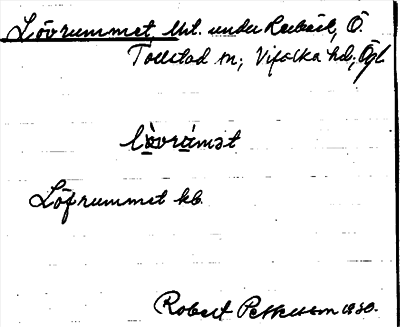 Lövrummet, lht. under Reebäck, Ö.
Tollstad sn; Vifolka hd; Ögl.
lövrúmət
Löfrummet kb.
Robert Pettersson 1930.